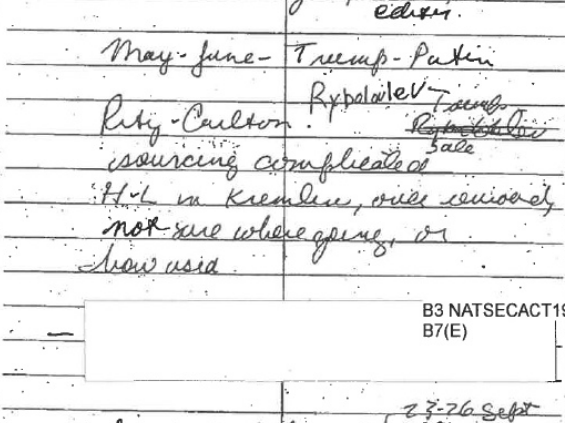 editor.
May - June - Trump - Putin
Rybolovlev - Trump
Ritz - Carlton. Rybolovlev
Sale
sourcing complicated
H-L in Kremlin, once removed,
not sure where going, or
how used
—
B3 NATSECACT19
B7(E)
23-26 Sept